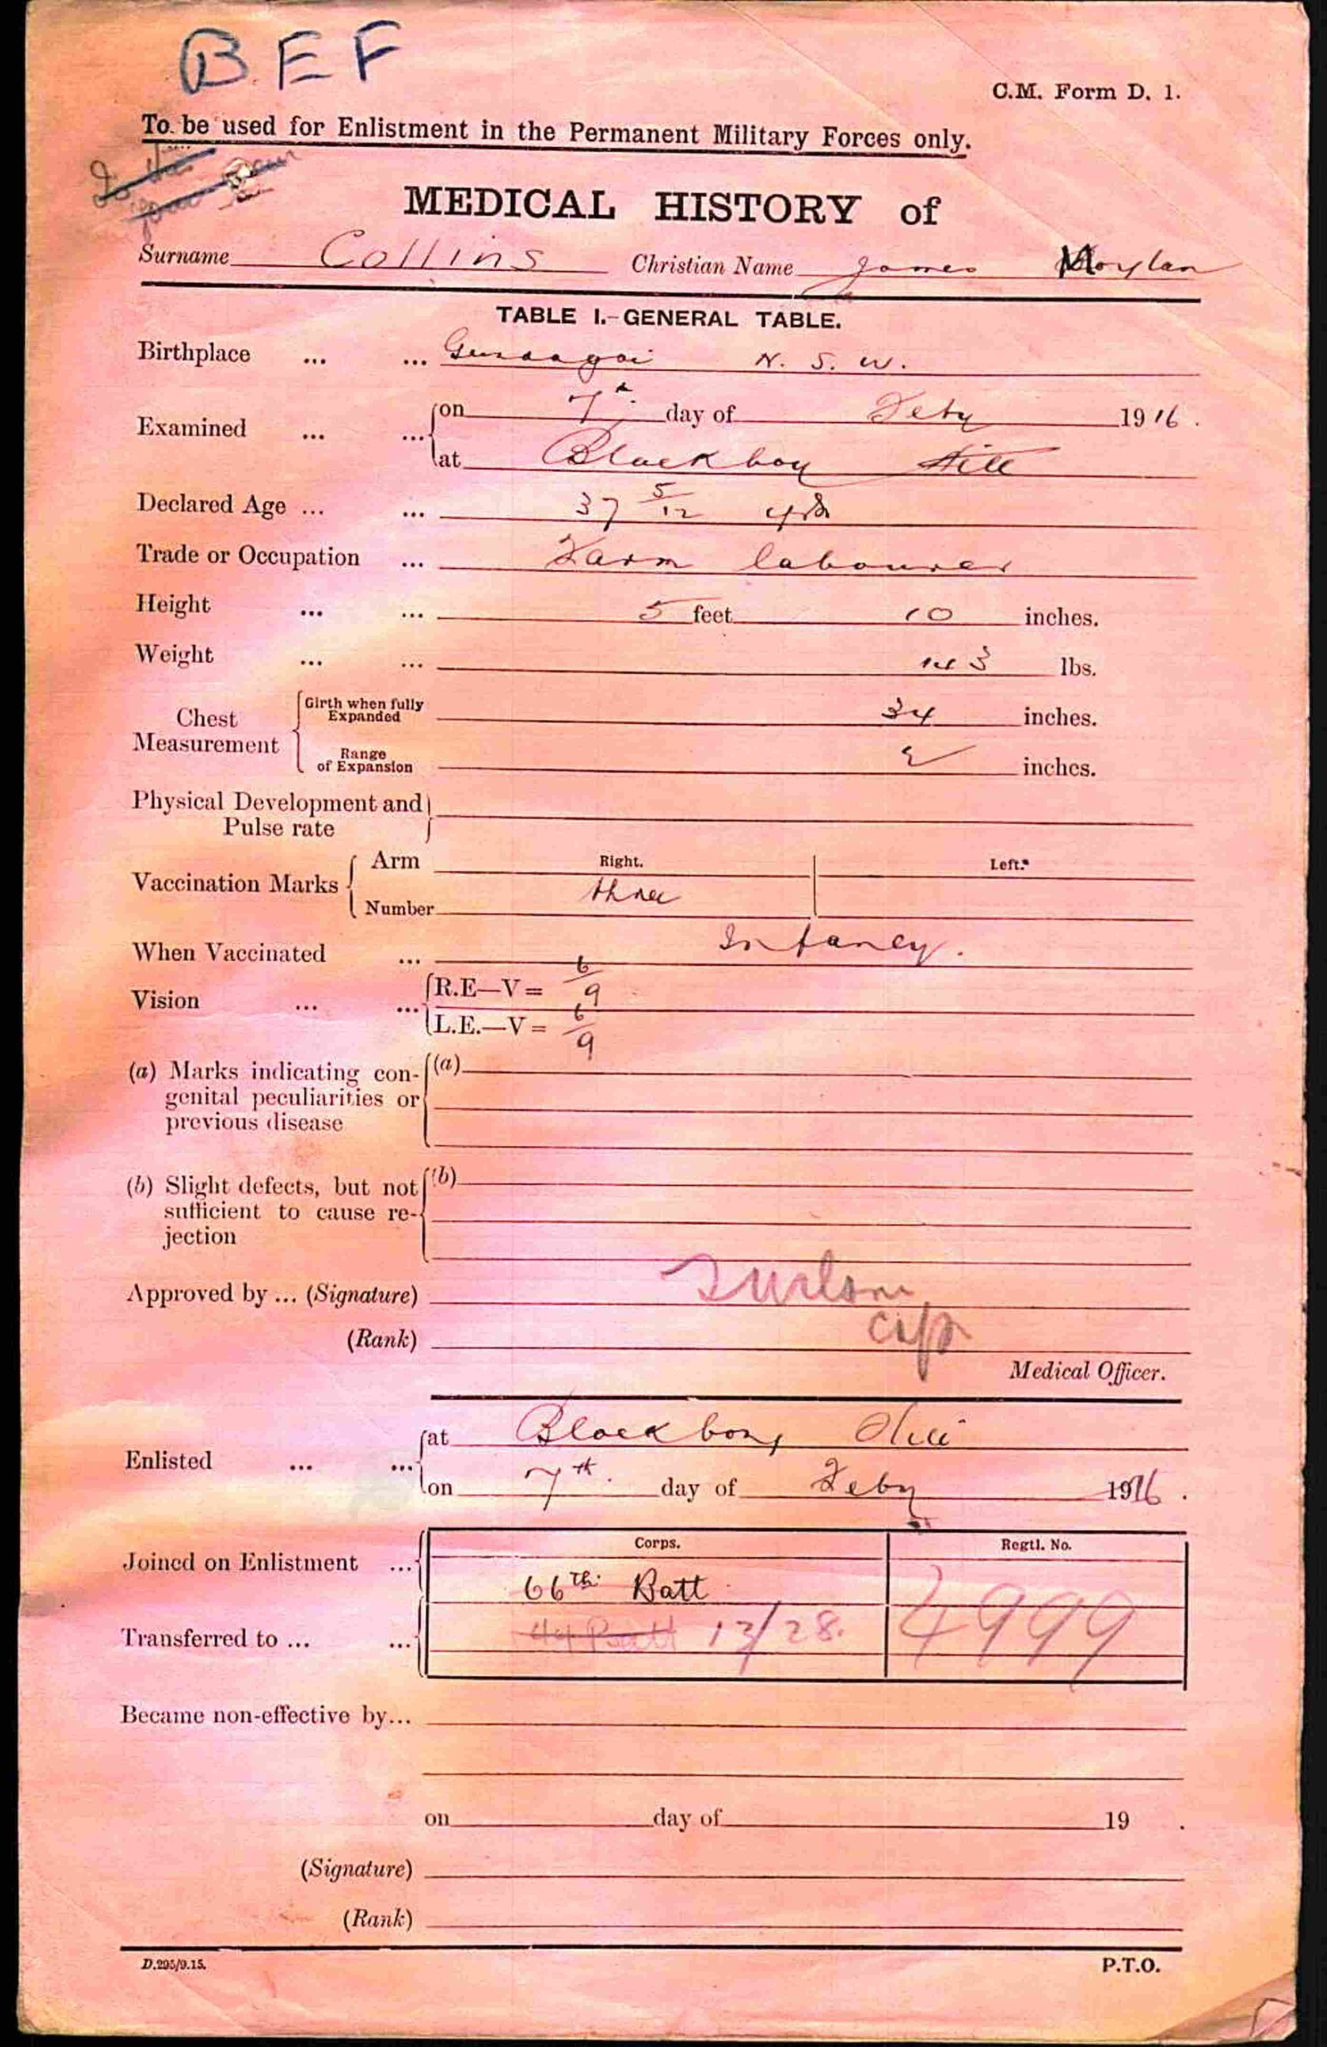 B.E.F
C.M. Form D. 1.
To be used for Enlistment in the Permanent Military Forces only.
MEDICAL HISTORY of
Surname Collins Christian Name James Moylan
TABLE I.-GENERAL TABLE.
Birthplace ... ... Gundagai N. S. W.
Examined ... ... on 7th day of Feby 1916.
at Blackboy Hill
Declared Age ... ... 37 5/12 yrs
Trade or Occupation ... Farm labourer
Height ... ... 5 feet 10 inches.
Weight ... ... 143 lbs.
Chest Measurement Girth when fully Expanded 34 inches.
Range of Expansion 2 inches.
Physical Development and Pulse rate
Vaccination Marks Arm Right. Left.
Number three
When Vaccinated ... Infancy.
Vision ... ... R.E—V = 6/9
L.E.—V = 6/9
(a) Marks indicating con- (a)
genital peculiarities or
previous disease
(b) Slight defects, but not (b)
sufficient to cause re-
jection
Approved by ... (Signature)
(Rank)
Medical Officer.
Enlisted ... ... at Blackboy Hill
on 7th. day of Feby 1916.
Corps. Regtl. No.
Joined on Enlistment ... 66th. Batt
Transferred to ... ... 44 Batt 13/28. 4999
Became non-effective by...
on day of 19 .
(Signature)
(Rank)
D.295/9.15. P.T.O.